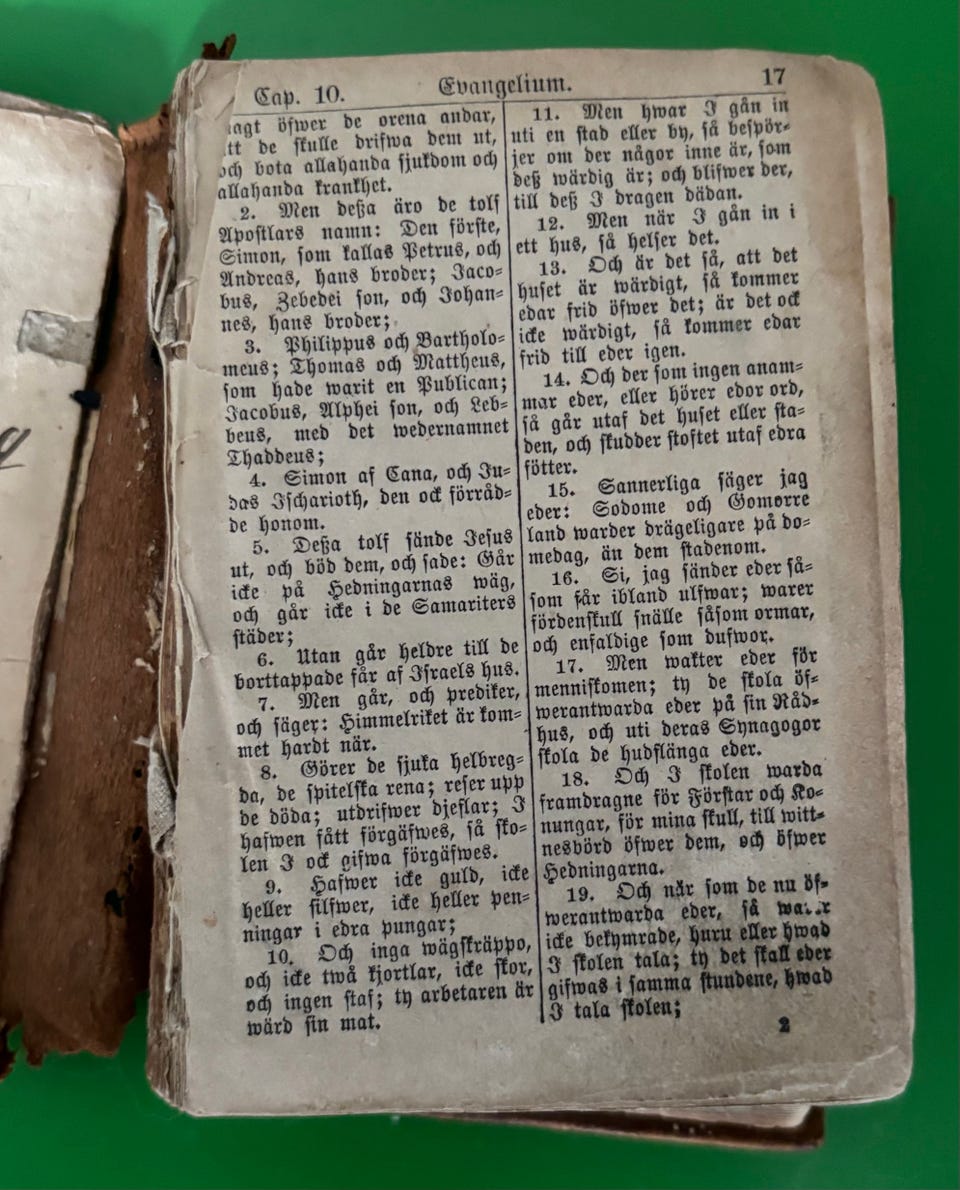 Cap. 10.
Evangelium.
17
agt öfwer de orena andar,
tt de skulle drifwa dem ut,
och bota allahanda sjukdom och
allahanda krankhet.
2. Men deßa äro de tolf
Apostlars namn: Den förste,
Simon, som kallas Petrus, och
Andreas, hans broder; Jaco-
bus, Zebedei son, och Johan-
nes, hans broder;
3. Philippus och Bartholo-
meus; Thomas och Mattheus,
som hade warit en Publican;
Jacobus, Alphei son, och Leb-
beus, med det wedernamnet
Thaddeus;
4. Simon af Cana, och Ju-
das Ischarioth, den ock förråd-
de honom.
5. Deßa tolf sände Jesus
ut, och böd dem, och sade: Går
icke på Hedningarnas wäg,
och går icke i de Samariters
städer;
6. Utan går heldre till de
borttappade får af Israels hus.
7. Men går, och prediker,
och säger: Himmelriket är kom-
met hardt när.
8. Görer de sjuka helbreg-
da, de spitelska rena; reser upp
de döda; utdrifwer djeflar; I
hafwen fått förgäfwes, så sko-
len I ock gifwa förgäfwes.
9. Hafwer icke guld, icke
heller silfwer, icke heller pen-
ningar i edra pungar;
10. Och inga wägskräppo,
och icke twå kjortlar, icke skor,
och ingen staf; ty arbetaren är
wärd sin mat.
11. Men hwar I gån in
uti en stad eller by, så bespör-
jer om der någor inne är, som
deß wärdig är; och blifwer der,
till deß I dragen dädan.
12. Men när I gån in i
ett hus, så helser det.
13. Och är det så, att det
huset är wärdigt, så kommer
edar frid öfwer det; är det ock
icke wärdigt, så kommer edar
frid till eder igen.
14. Och der som ingen anam-
mar eder, eller hörer edor ord,
så går utaf det huset eller sta-
den, och skudder stoftet utaf edra
fötter.
15. Sannerliga säger jag
eder: Sodome och Gomorre
land warder drägeligare på do-
medag, än dem stadenom.
16. Si, jag sänder eder så-
som får ibland ulfwar; warer
fördenskull snälle såsom ormar,
och enfaldige som dufwor.
17. Men wakter eder för
menniskomen; ty de skola öf-
werantwarda eder på sin Råd-
hus, och uti deras Synagogor
skola de hudflänga eder.
18. Och I skolen warda
framdragne för Förstar och Ko-
nungar, för mina skull, till witt-
nesbörd öfwer dem, och öfwer
Hedningarna.
19. Och när som de nu öf-
werantwarda eder, så
icke bekymrade, huru eller hwad
I skolen tala; ty det skall eder
gifwas i samma stundene, hwad
I tala skolen;
2